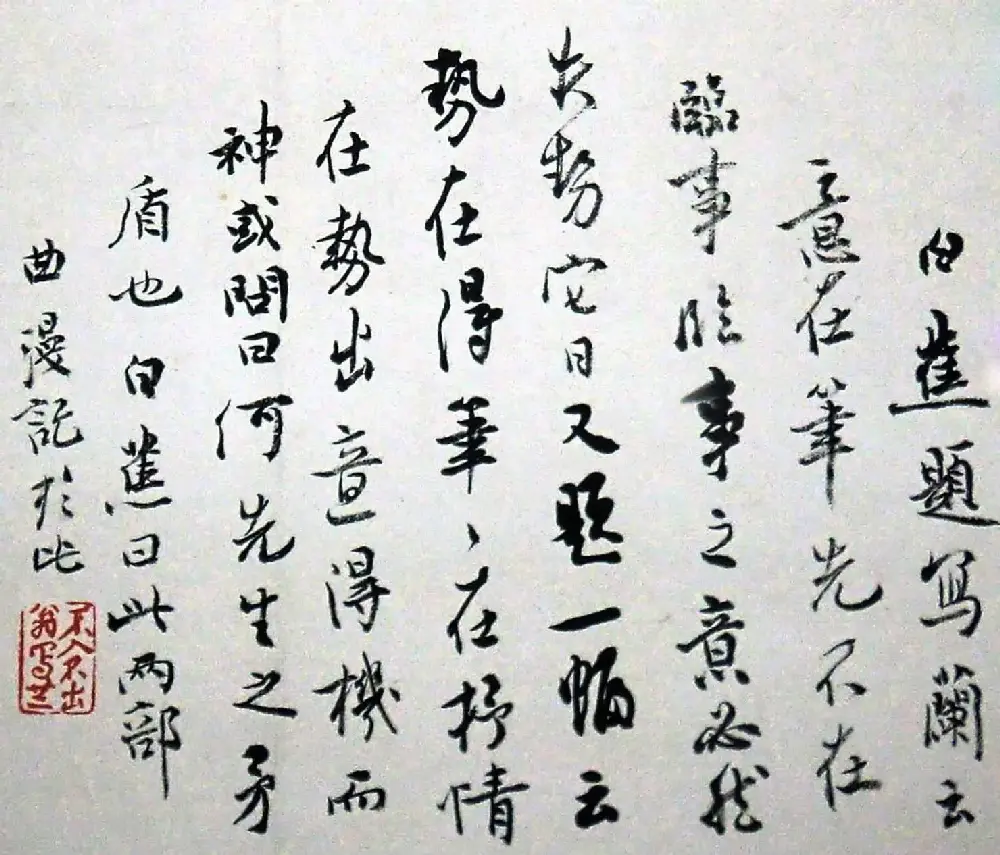 白蕉題寫蘭云
意在筆先不在
臨事臨事之意必然
失勢它日又題一幅云
勢在得筆、在抒情
在勢出意得機而
神或問曰何先生之矛
盾也白蕉曰此兩部
曲漫記於此
不入不出